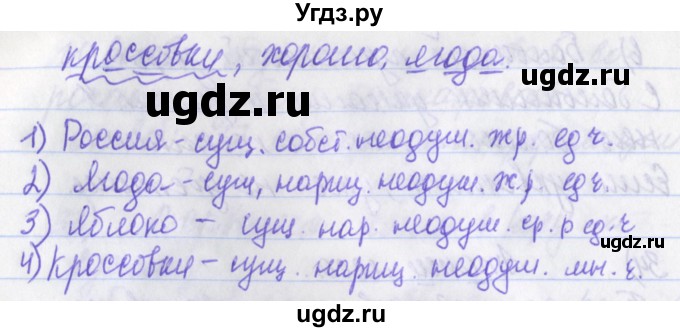 Угдз.ру
кроссовки, хорошо, ягода.
ugdz.ru
ugdz.ru
1) Россия - сущ. собст. неодуш. ж.р. ед.ч.
2) Ягода - сущ, нариц. неодуш. ж.р ед.ч.
3) Яблоко - сущ. нар. неодуш. ср. р ед.ч
4) Кроссовки - сущ. нариц. неодуш. мн. ч.
ugdz.ru
ugdz.ru
ugdz.ru